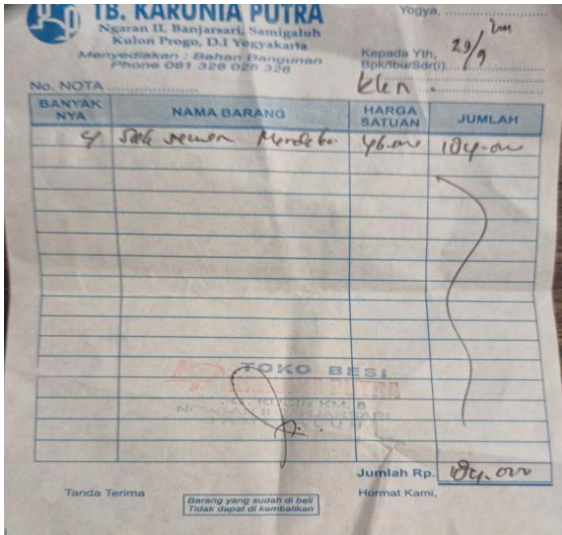 TB. KARUNIA PUTRA
Ngaran II, Banjarsari, Samigaluh
Kulon Progo, D.I Yogyakarta
Menyediakan : Bahan Bangunan
Phone 081 328 025 326
Yogya, ....................
29/9
Kepada Yth,
Bpk/Ibu/Sdr(i)
No. NOTA
BANYAK NYA NAMA BARANG HARGA SATUAN JUMLAH
4 Sak semen Merdeka 46.000 184.000
TOKO BESI
PUTRA
KM. 8
Jumlah Rp. 184.000
Tanda Terima
Barang yang sudah di beli
Tidak dapat di kembalikan
Hormat Kami,